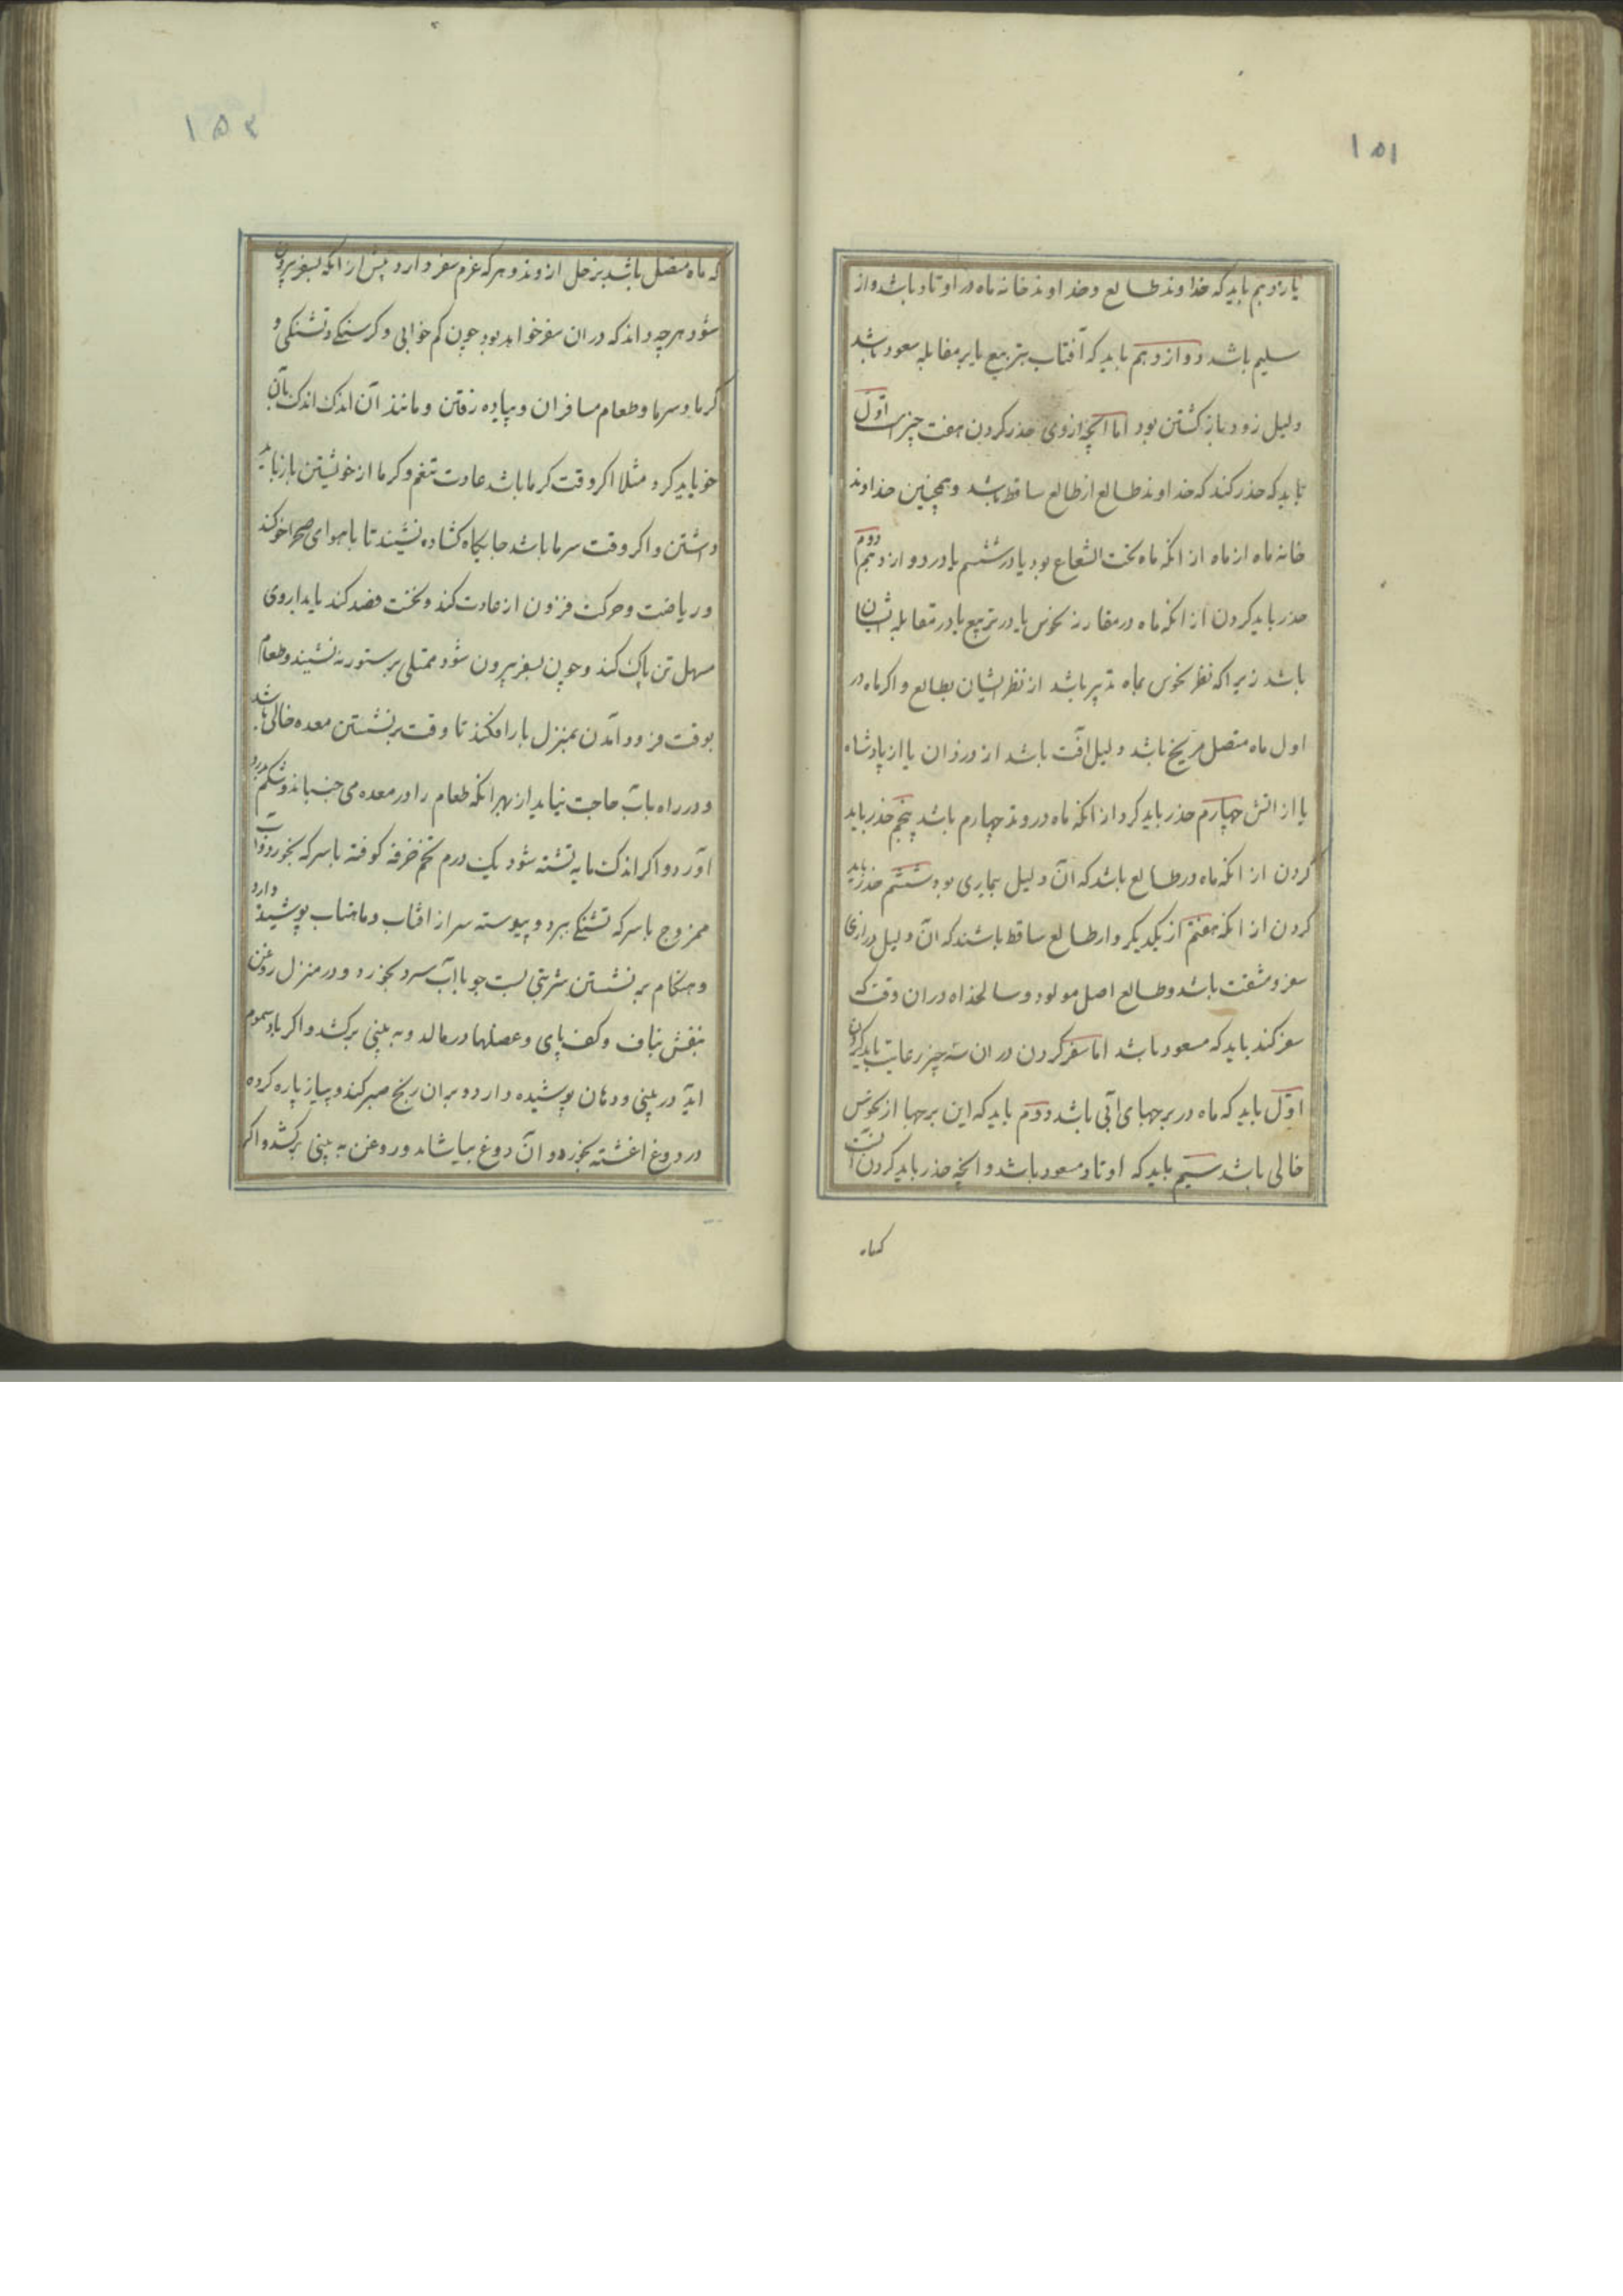 ١٥١
یازدهم باید که خداوند طالع و خداوند خانه ماه در اوتاد باشد و از
سلیم باشد دوازدهم باید که آفتاب بتربیع یا بر مقابله سعود باشد
دلیل زود باز کشتن بود اما انچه ازوی حذر کردن هفت چیز است اوّل
باید که حذر کند که خداوند طالع از طالع ساقط باشد و همچنین خداوند
خانه ماه از ماه از انکه ماه تحت الشعاع بود یا در ششم یا در دوازدهم دوم
حذر باید کردن از انکه ماه در مقارنه نحوس یا در تربیع یا در مقابله ایشان
باشد زیرا که نظر نحوس بماه بتر باشد از نظر ایشان بطالع و اکر ماه در
اول ماه متصل مریخ باشد دلیل آفت باشد از دزدان یا از پادشاه
یا از اتش چهارم حذر باید کرد از انکه ماه در وتد چهارم باشد پنجم حذر باید
کردن از انکه ماه در طالع باشد که آن دلیل بیماری بود ششم حذر باید
کردن از انکه هفتم از یکدیکر و از طالع ساقط باشند که ان دلیل درازی
سفر و مشقت باشد و طالع اصل مولود و سالخداه در ان وقت که
سفر کند باید که مسعود باشد اما سفر کردن در ان سه چیز رعایت باید کردن
اوّل باید که ماه در برجهای آبی باشد دوم باید که این برجها از نحوس
خالی باشد سیم باید که اوتاد مسعود باشد و انچه حذر باید کردن آنست
کماه
١٥٢
که ماه متصل باشد بزحل از وتد و هر که عزم سفر دارد پیش از انکه بسفر بیرون
شود هر چه داند که در ان سفر خواهد بود چون کم خوابی و کرسنکی و تشنکی و
کرما و سرما و طعام مسافران و پیاده رفتن و مانند آن اندک اندک بآن
خو باید کرد مثلا اکر وقت کرما باشد عادت تنعم و کرما از خویشتن باز باید
داشتن و اکر وقت سرما باشد جایکاه کشاده نشیند تا باهوای صحرا خو کند
و ریاضت و حرکت فزون از عادت کند و نخست فصد کند یا بداروی
مسهل تن پاک کند و چون بسفر بیرون شود ممتلی بر ستور نه نشیند و طعام
بوقت فرود آمدن بمنزل بار افکند تا وقت بر نشستن معده خالی باشد
و در راه باب حاجت نیاید از بهر انکه طعام را در معده می جنباند و شکم درد
آورد و اکر اندک مایه تشنه شود یک درم تخم خرفه کوفته با سرکه بخورد و آب
ممزوج با سرکه تشنکی ببرد و پیوسته سر از افتاب و ماهتاب پوشیده دارد
و هنکام بر نشستن شربتی پست جو با آب سرد بخورد و در منزل روغن
بنفش بناف و کف پای و عضلها در مالد و به بینی برکشد و اکر باد سموم
اید در بینی و دهان پوشیده دارد و بر ان رنج صبر کند و پیاز پاره کرده
در دوغ اغشته بخورد و آن دوغ بیاشامد و روغن به بینی برکشد و اکر